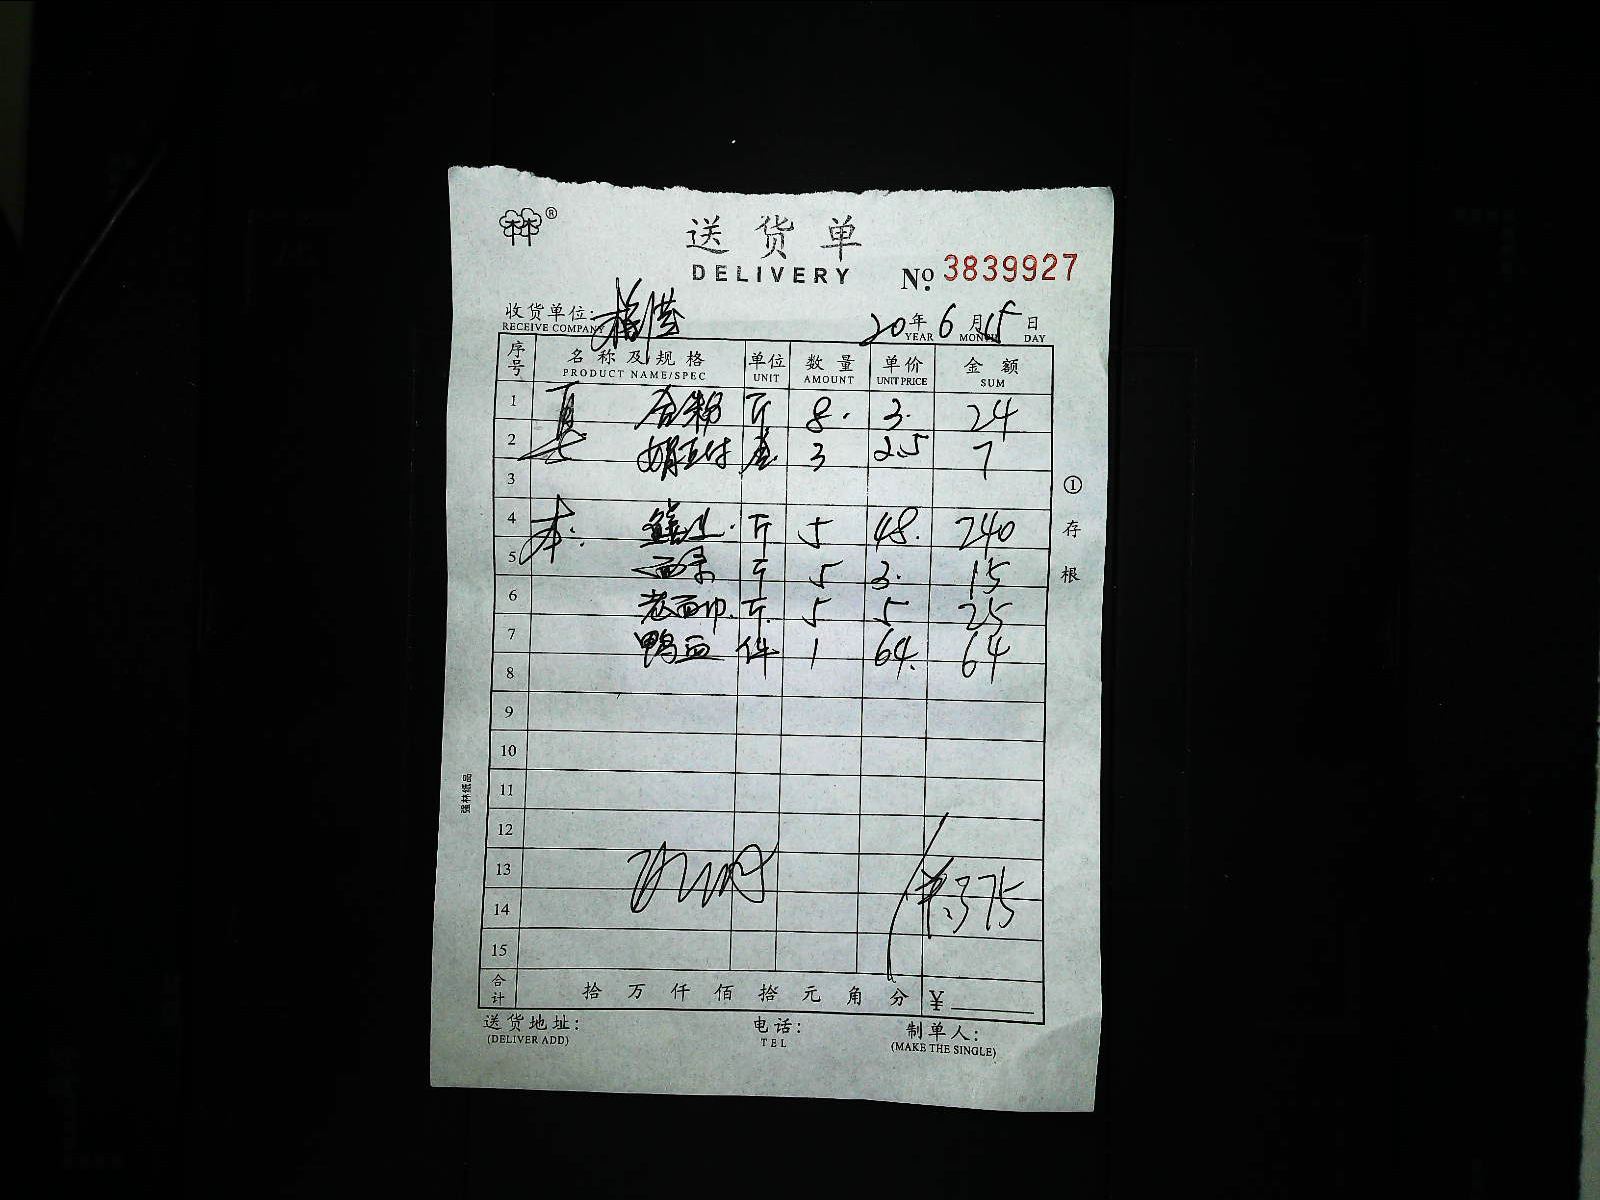 林林®
送货单
DELIVERY
№ 3839927
收货单位:
RECEIVE COMPANY
20年 6月 15日
YEAR MONTH DAY
序号 名称及规格 单位 数量 单价 金额
PRODUCT NAME/SPEC UNIT AMOUNT UNIT PRICE SUM
1 斤 8. 3. 24
2 3 2.5 7
3
4 斤 5 48. 240
5 斤 5 3. 15
6 斤 5 5 25
7 鸭血 件 1 64. 64
8
9
10
11
12
13 375
14
15
合计 拾万仟佰拾元角分 ¥
送货地址: 电话: 制单人:
(DELIVER ADD) TEL (MAKE THE SINGLE)
①存根
强林纸品